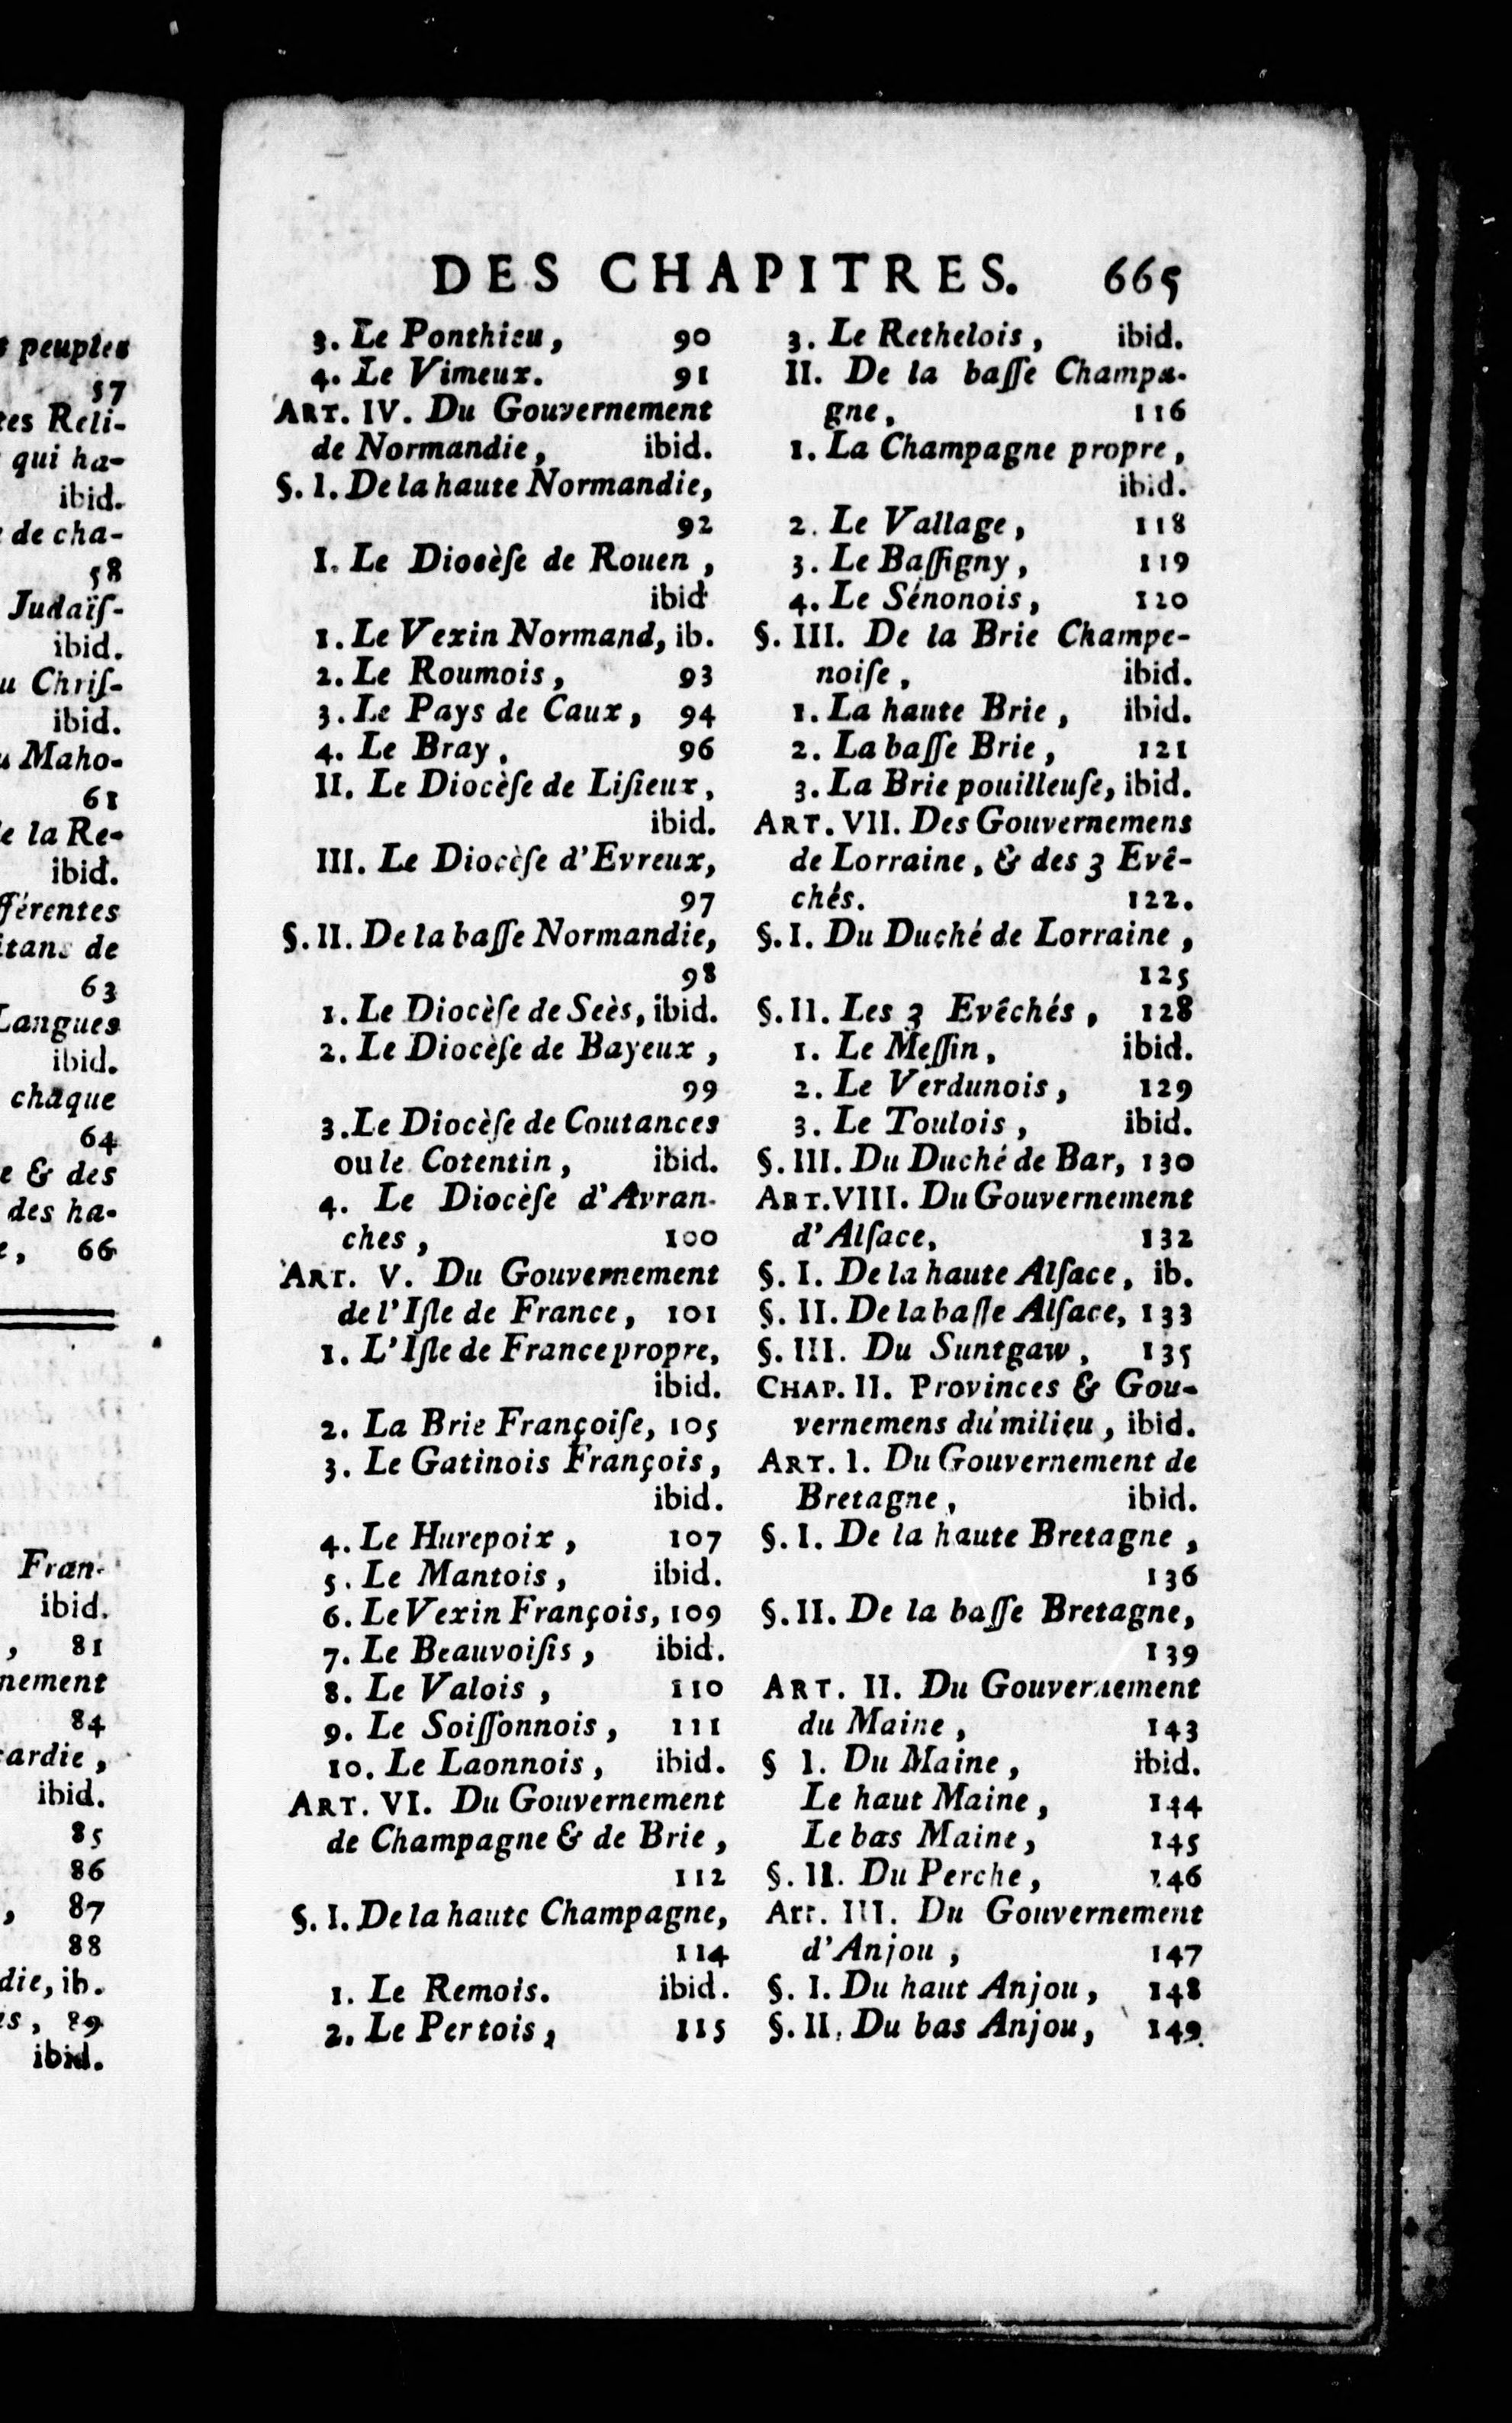 t peuples
57
tes Reli-
qui ha-
ibid.
de cha-
58
Judaïſ-
ibid.
u Chriſ-
ibid.
u Maho-
61
e la Re-
ibid.
fférentes
itans de
63
Langues
ibid.
chaque
64
e & des
des ha-
e, 66
Fran-
ibid.
, 81
nement
84
cardie,
ibid.
85
86
, 87
88
die, ib.
es, 89
ibid.
DES CHAPITRES. 665
3. Le Ponthieu, 90
4. Le Vimeux. 91
ART. IV. Du Gouvernement
de Normandie, ibid.
§. I. De la haute Normandie,
92
I. Le Diocèſe de Rouen,
ibid
1. Le Vexin Normand, ib.
2. Le Roumois, 93
3. Le Pays de Caux, 94
4. Le Bray, 96
II. Le Diocèſe de Liſieux,
ibid.
III. Le Diocèſe d'Evreux,
97
§. II. De la baſſe Normandie,
98
1. Le Diocèſe de Seès, ibid.
2. Le Diocèſe de Bayeux,
99
3. Le Diocèſe de Coutances
ou le Cotentin, ibid.
4. Le Diocèſe d'Avran-
ches, 100
ART. V. Du Gouvernement
de l'Iſle de France, 101
1. L'Iſle de France propre,
ibid.
2. La Brie Françoiſe, 105
3. Le Gatinois François,
ibid.
4. Le Hurepoix, 107
5. Le Mantois, ibid.
6. Le Vexin François, 109
7. Le Beauvoiſis, ibid.
8. Le Valois, 110
9. Le Soiſſonnois, 111
10. Le Laonnois, ibid.
ART. VI. Du Gouvernement
de Champagne & de Brie,
112
§. I. De la haute Champagne,
114
1. Le Remois. ibid.
2. Le Pertois, 115
3. Le Rethelois, ibid.
II. De la baſſe Champa-
gne, 116
1. La Champagne propre,
ibid.
2. Le Vallage, 118
3. Le Baſſigny, 119
4. Le Sénonois, 120
§. III. De la Brie Champe-
noiſe, ibid.
1. La haute Brie, ibid.
2. La baſſe Brie, 121
3. La Brie pouilleuſe, ibid.
ART. VII. Des Gouvernemens
de Lorraine, & des 3 Evê-
chés. 122.
§. I. Du Duché de Lorraine,
125
§. II. Les 3 Evêchés, 128
1. Le Meſſin, ibid.
2. Le Verdunois, 129
3. Le Toulois, ibid.
§. III. Du Duché de Bar, 130
ART. VIII. Du Gouvernement
d'Alſace, 132
§. I. De la haute Alſace, ib.
§. II. De la baſſe Alſace, 133
§. III. Du Suntgaw, 135
CHAP. II. Provinces & Gou-
vernemens du milieu, ibid.
ART. I. Du Gouvernement de
Bretagne, ibid.
§. I. De la haute Bretagne,
136
§. II. De la baſſe Bretagne,
139
ART. II. Du Gouvernement
du Maine, 143
§ I. Du Maine, ibid.
Le haut Maine, 144
Le bas Maine, 145
§. II. Du Perche, 146
Art. III. Du Gouvernement
d'Anjou, 147
§. I. Du haut Anjou, 148
§. II. Du bas Anjou, 149.